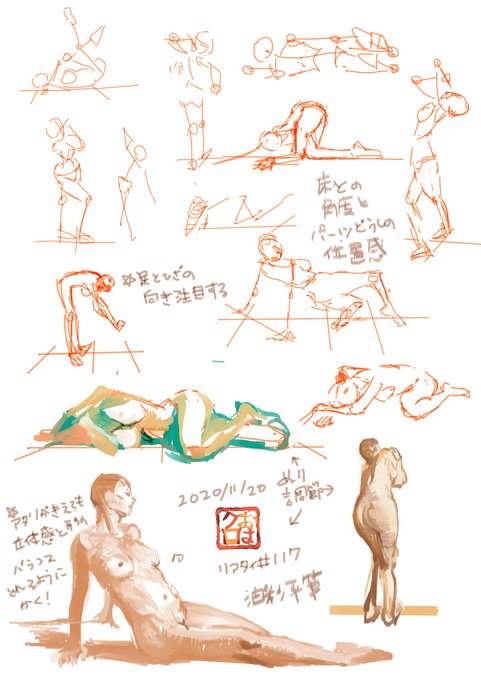 床との
角度と
パーツどうしの
位置感
※足とひざの
向き注目する
2020/11/20
めくり
調節
※アタリがきえても
立体感と
バランス
とれるように
かく!
クロ
リアタイ#117
油彩平筆